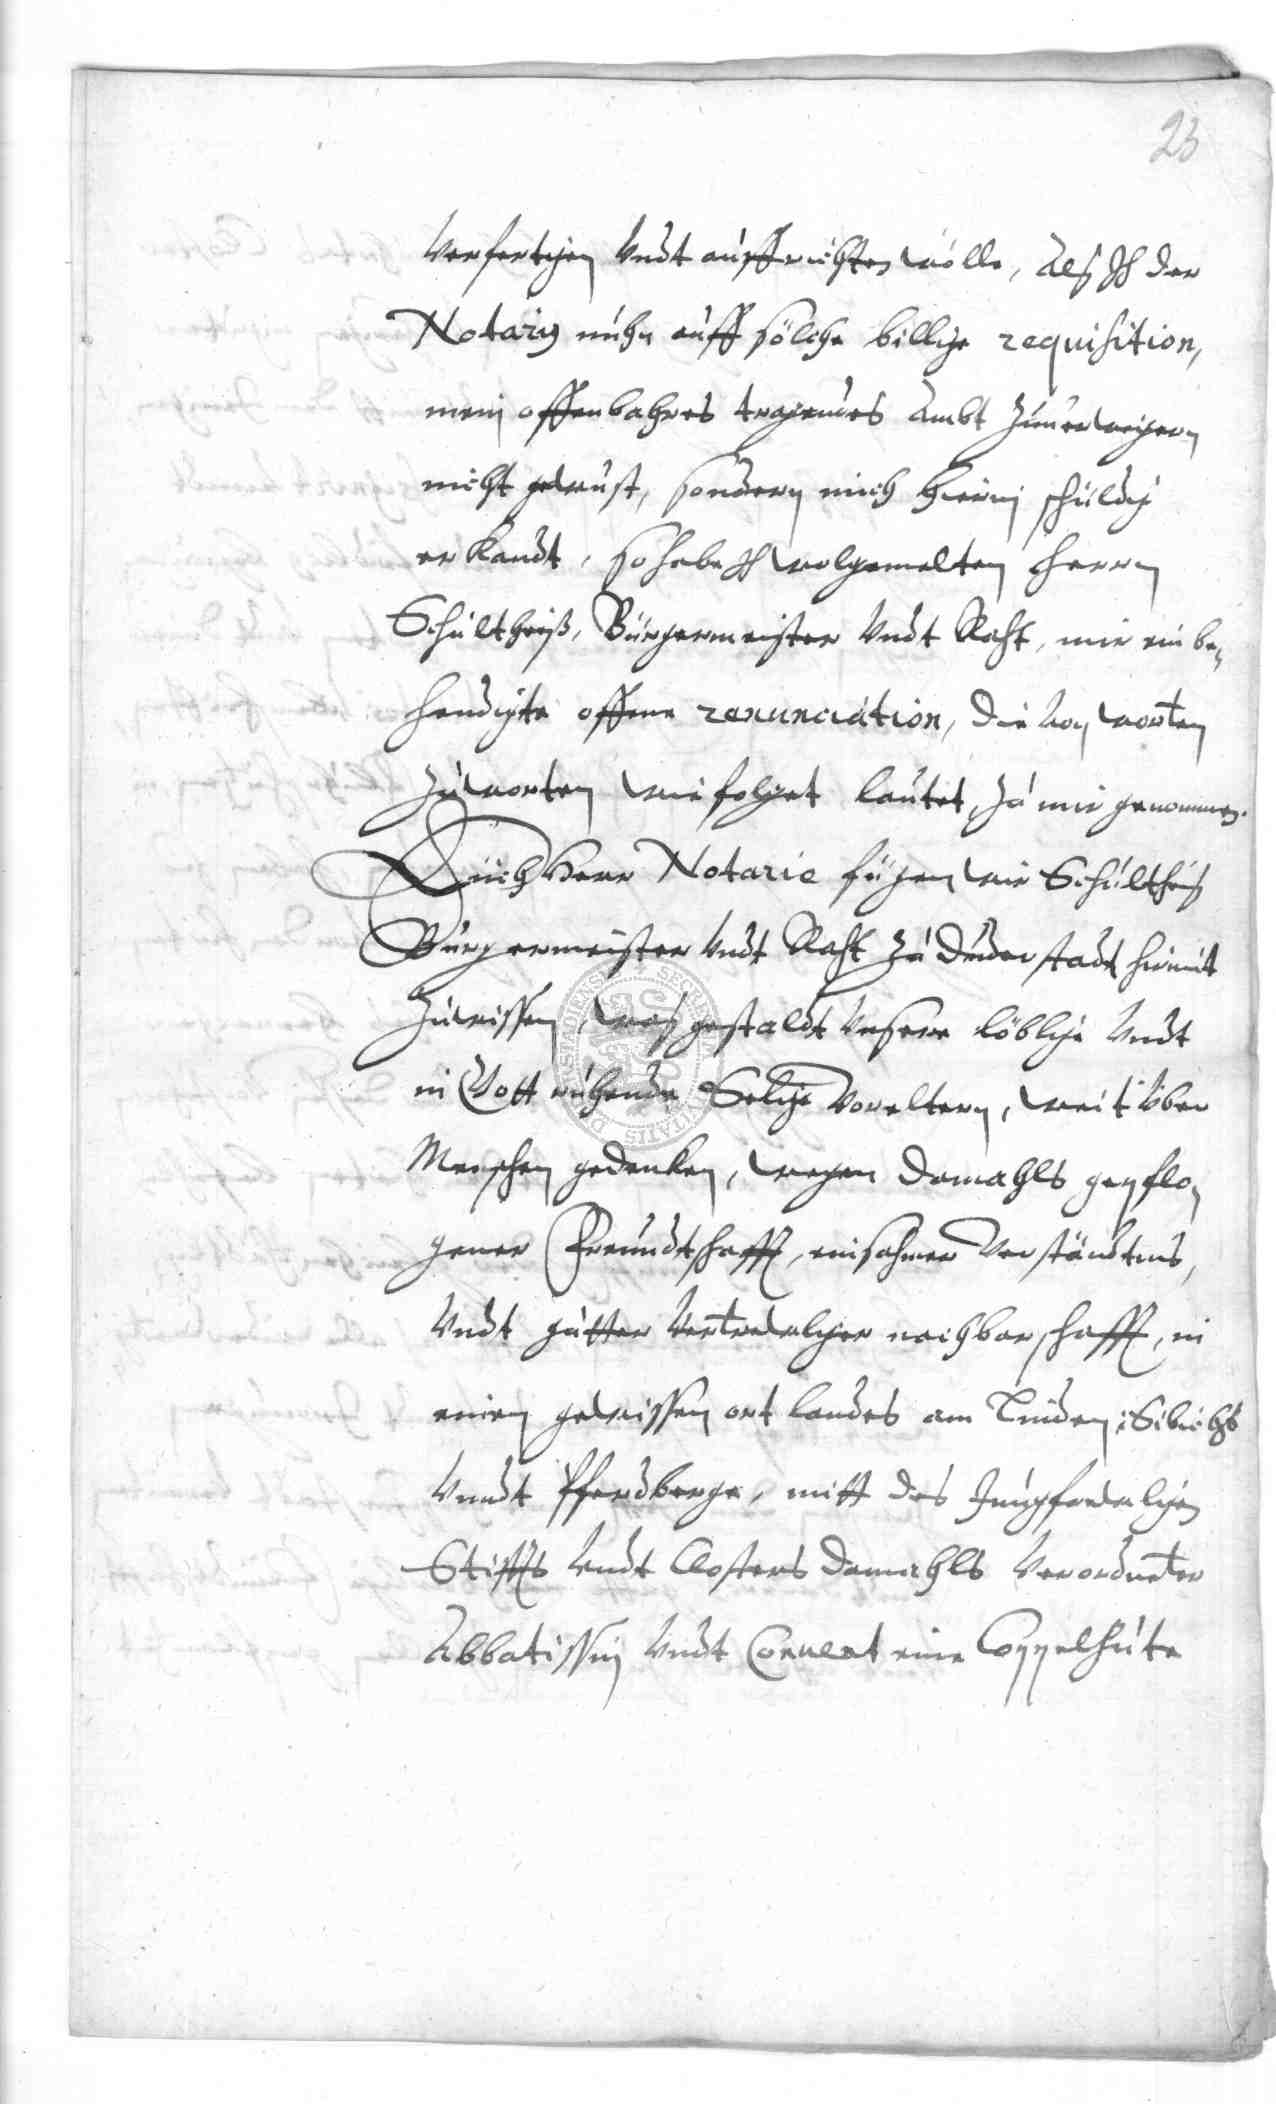 23
verfertigen undt auffrichten wölle, Alß Ich der
Notarius nuhn auff solche billige requisition,
mein offenbahres tragendes Ambt zuuerweigern
nicht gewust, sondern mich hierin schuldig
erkandt, so habe Ich wolgemelten Herrn
Schultheiß, Bürgermeister undt Raht, mir ein be-
hendigte offene renunciation, die von worten
zu worten wie folget lautet, zu mir genommen.
Euch Herr Notarie fügen wir Schultheiß
Bürgermeister undt Raht zu Duderstadt hiemit
zu wissen, was gestaldt unsere löbliche undt
in Gott ruhende Selige Voreltern, weit über
Menschen gedenken, wegen damahls gepflo-
gener Freundtschafft, einsahmer Verständtnus,
undt gutter Vertrewlicher nachbarschafft, in
einem gewissen ort landes am Linden,
Unndt Pferdberge, mitt des Jungfrewlichen
Stiffts undt Closters damahls Verordneter
Abbatissin undt Conuent eine Coppelhute